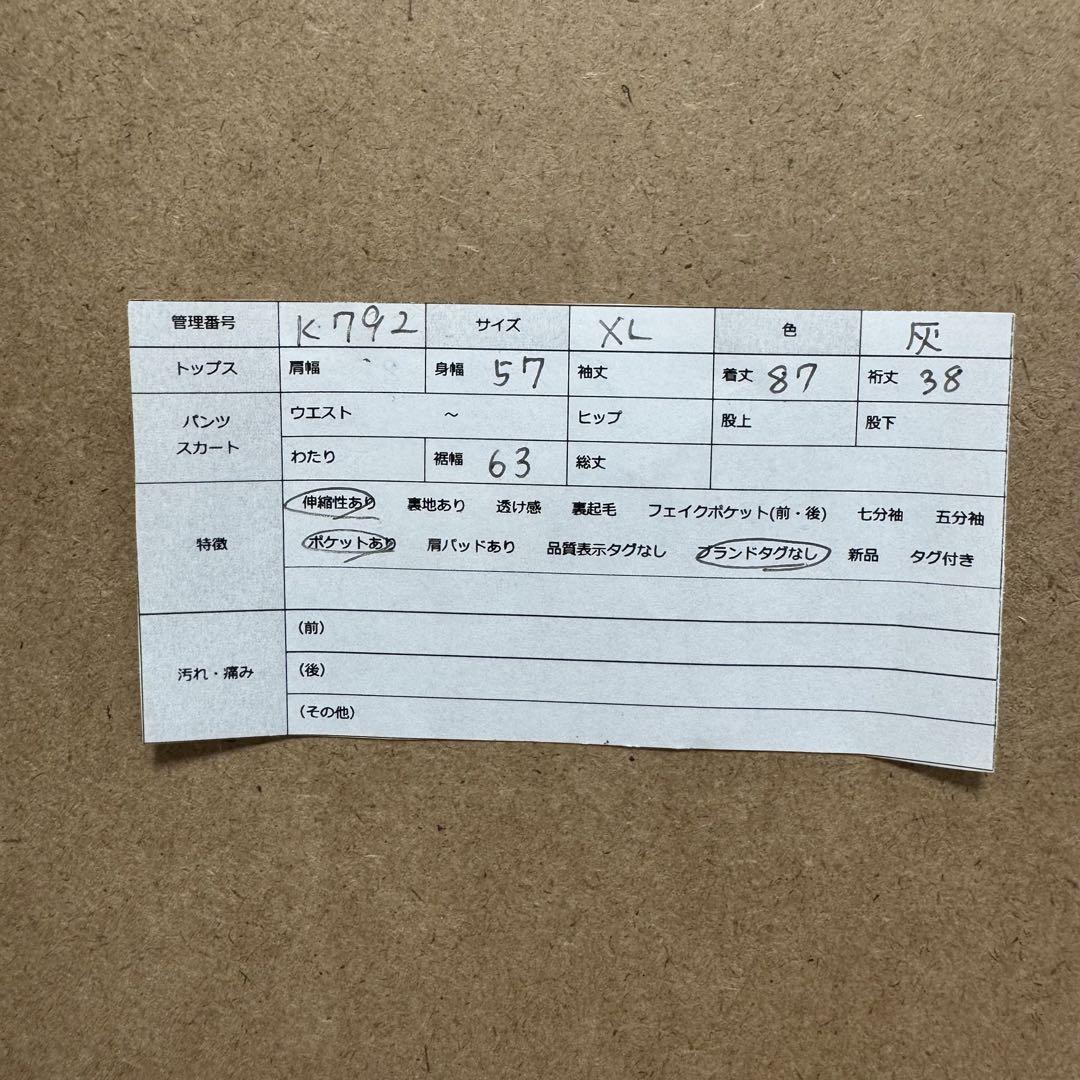 管理番号 K792 サイズ XL 色 灰
トップス 肩幅 身幅 57 袖丈 着丈 87 裄丈 38
パンツ スカート ウエスト ～ ヒップ 股上 股下
わたり 裾幅 63 総丈
特徴 伸縮性あり 裏地あり 透け感 裏起毛 フェイクポケット(前・後) 七分袖 五分袖
ポケットあり 肩パッドあり 品質表示タグなし ブランドタグなし 新品 タグ付き
汚れ・痛み (前)
(後)
(その他)